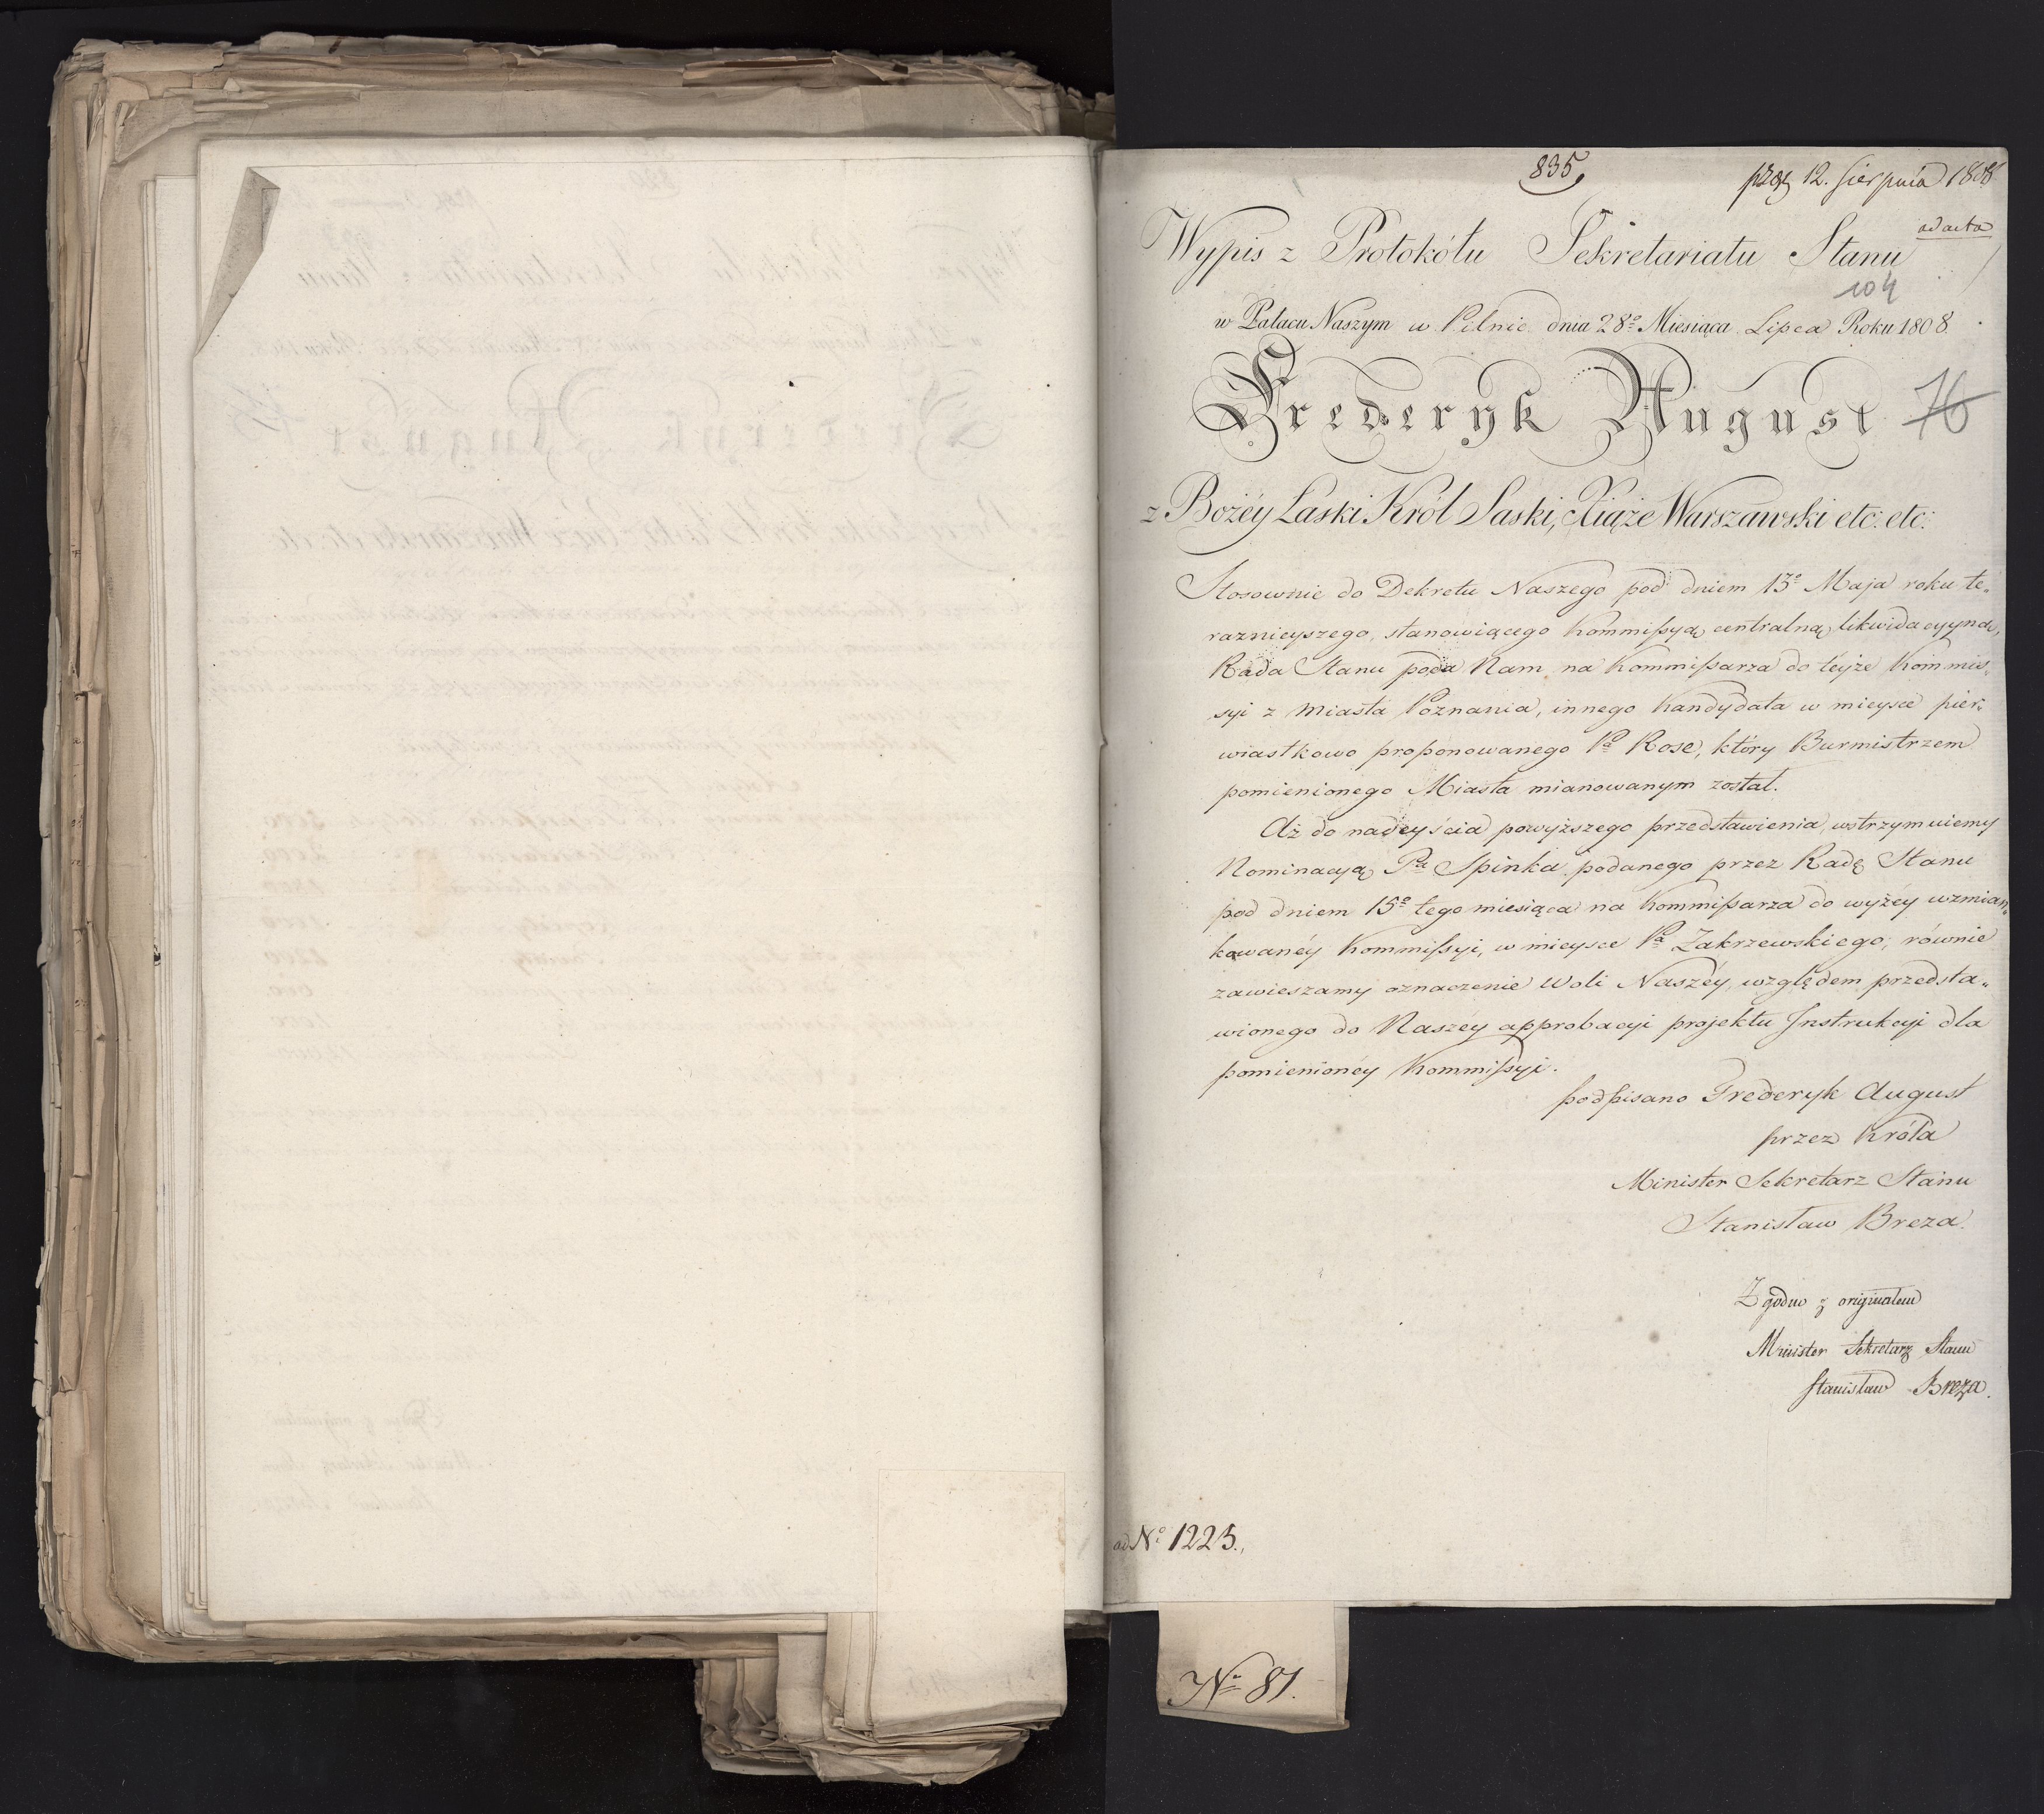 835
12. Sierpnia 1808
ad acta
Wypis z Protokółu Sekretariatu Stanu
104
w Pałacu Naszym w Pilnic dnia 28º Miesiąca Lipca Roku 1808
Fryderyk August
76
z Bożéy Łaski Król Saski, Xiąże Warszawski etc: etc:
Stosownie do Dekretu Naszego pod dniem 13º Maja roku te„
raznieyszego, stanowiącego Kommißyą centralną likwidacyyną,
Rada Stanu poda Nam na Kommißarza do téyże Kommis„
syi z Miasta Poznania, innego Kandydata w mieysce pier„
wiastkowo proponowanego Pa Rose, który Burmistrzem
pomienionego Miasta mianowanym został.
Aż do nadeyścia powyższego przedstawienia, wstrzymuiemy
Nominacyą Pa Spinka podanego przez Radę Stanu
pod dniem 15º tego miesiąca na Kommißarza do wyżéy wzmian„
kowanéy Kommißyi, w mieysce Pa Zakrzewskiego; równie
zawieszamy oznaczenie Woli Naszéy, względem przedsta„
wionego do Naszéy approbacyi projektu Instrukcyi dla
pomienionéy Kommißyi.
podpisano Frederyk August
przez Króla
Minister Sekretarz Stanu
Stanisław Breza.
Zgodno z oryginałem
Minister Sekretarz Stanu
Stanisław Breza.
ad Nº 1223.,
Nº 81.